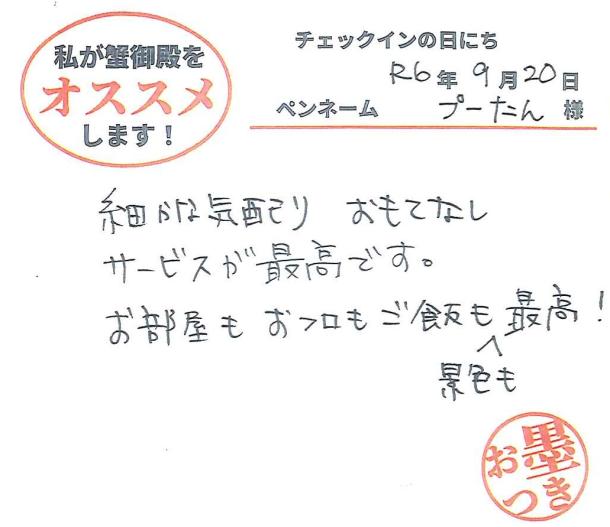 私が蟹御殿を
オススメ
します！
チェックインの日にち
R6年9月20日
ペンネーム プーたん 様
細かな気配り おもてなし
サービスが最高です。
お部屋も おフロもご飯も最高！
景色も
お墨
つき